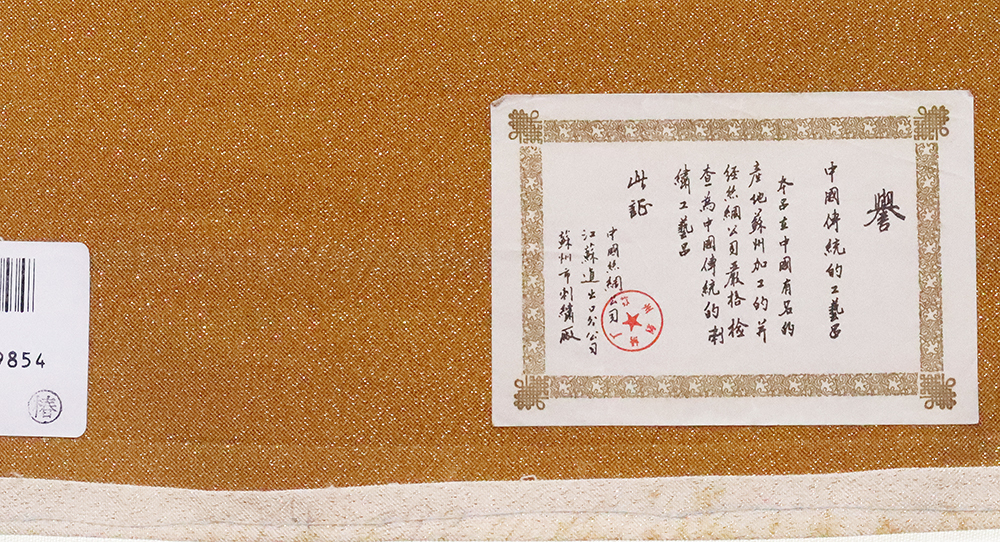 譽
中國傳統的工藝品
本品在中國有名的
產地蘇州加工的并
经絲綢公司嚴格檢
查為中國傳統的刺
繡工藝品
此証
中國絲綢公司
江蘇進出口分公司
蘇州市刺繡廠
9854
椿